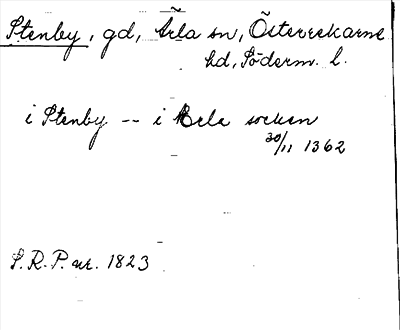 Stenby, gd, Ärla sn, Österrekarne
hd, Söderm. l.
i Stenby -- i Ærla socken
30/11 1362
S.R.P. nr. 1823